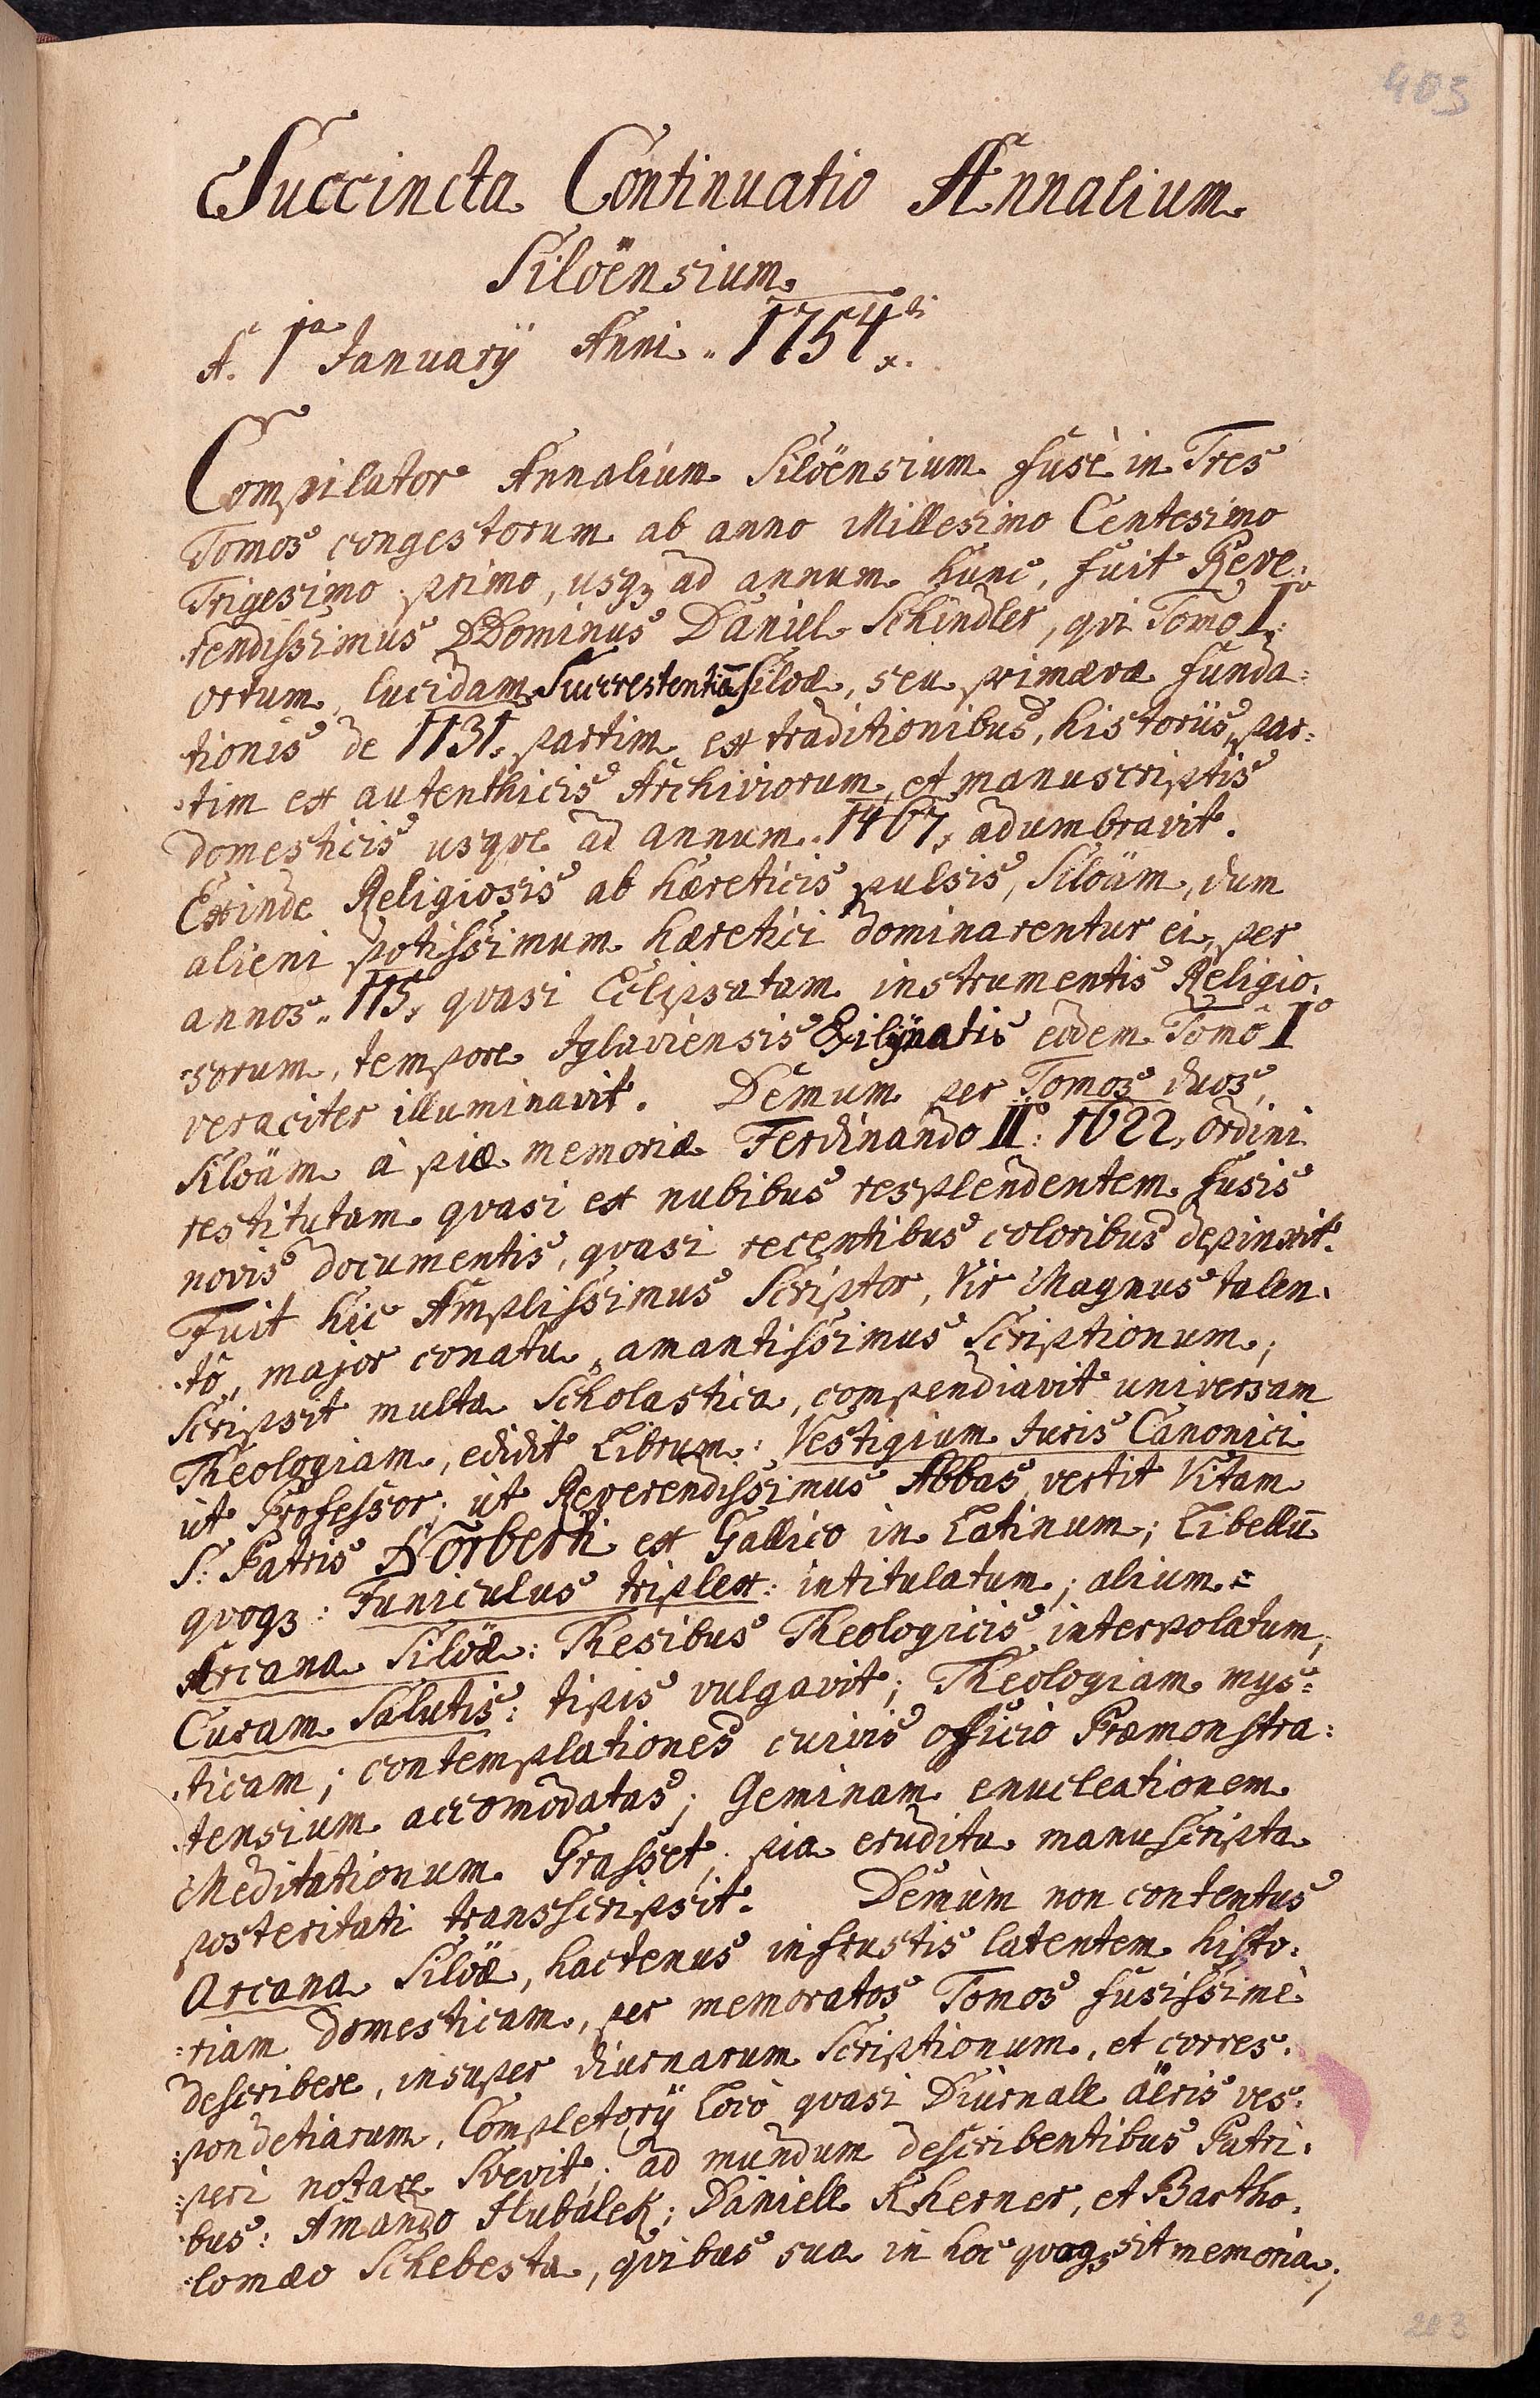 403
Succincta Continuatio Annalium
Siloënsium
A. 1ma Januarÿ Anni 1754ti
Compilator Annalium Siloënsium fusè in Tres
Tomos congestorum ab anno Millesimo Centesimo
Trigesimo primo, usqȝ ad annum hunc, fuit Reve:
rendissimus DDominus Daniel Schindler, qvi Tomo Io:
ortum, lucidam Succrestentiã Siloæ, seu primævæ funda:
tionis de 1131. partim ex traditionibus, historiis, par:
tim ex autenthicis Archiviorum, et manuscriptis
domesticis usqve ad annum 1467, adumbravit.
Exinde Religiosis ab hæreticis pulsis, Siloäm, dum
alieni potissimum hæretici dominarentur ei, per
annos 115, qvasi Eclipsatam instrumentis Religio:
sorum, tempore Iglaviensis Exilÿ natis eodem Tomô Io
veraciter illuminavit. Demum per Tomos duos,
Siloäm à piæ memoriæ Ferdinando IIo: 1622, Ordini
restitutam qvasi ex nubibus resplendentem fusis
novis documentis, qvasi recentibus coloribus depinxit.
Fuit hic Amplissimus Scriptor, Vir Magnus talen:
tô, major conatu, amantissimus Scriptionum,
Scripsit multa Scholastica, compendiavit universam
Theologiam, edidit Librum: Vestigium Iuris Canonici
ut Professor; ut Reverendissimus Abbas vertit Vitam
S: Patris Norberti ex Gallico in Latinum; Libellũ
qvoqȝ: Funiculus triplex: intitulatum; alium:
Arcana Siloæ: Thesibus Theologicis interpolatum;
Curam Salutis: tipis vulgavit; Theologiam mys:
ticam; contemplationes cuivis officio Præmonstra:
tensium accomodatas; Geminam enucleationem
Meditationum Grasset; pia erudita manuscripta
posteritati transscripsit. Demùm non contentus
Arcana Siloæ, hactenus in frustis latentem histo:
riam domesticam, per memoratos Tomos fusissimè
describere, insuper diurnarum Scriptionum, et corres:
pondetiarum, Completorÿ locô qvasi Diurnale aëris ves:
peri notare Svevit; ad mundum describentibus Patri:
bus: Amando Hubálek; Daniele Kherner, et Bartho:
lomæo Schebesta, qvibus sua in hoc qvoqȝ sit memoria;
203